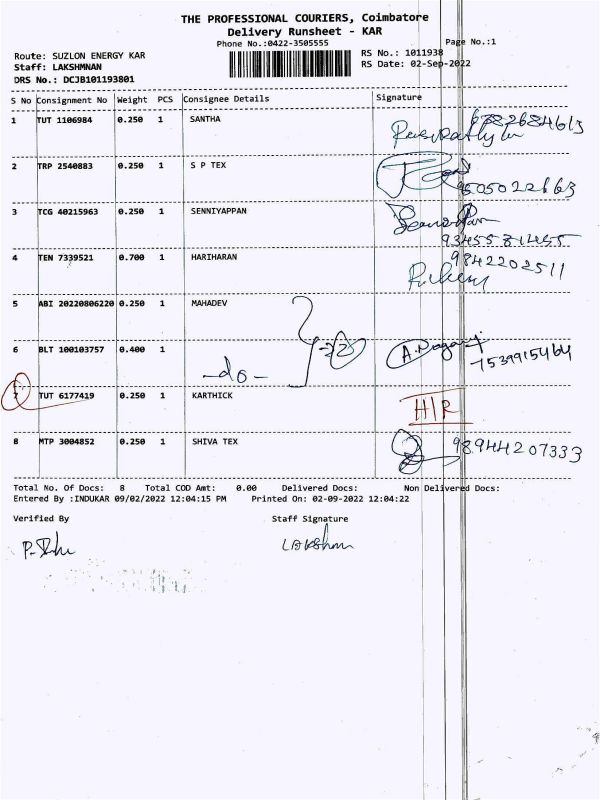 THE PROFESSIONAL COURIERS, Coimbatore
Delivery Runsheet - KAR
Phone No.:0422-3505555 Page No.:1
Route: SUZLON ENERGY KAR RS No.: 1011938
Staff: LAKSHMNAN RS Date: 02-Sep-2022
DRS No.: DCJB101193801
S No Consignment No Weight PCS Consignee Details Signature
1 TUT 1106984 0.250 1 SANTHA
2 TRP 2540883 0.250 1 S P TEX
3 TCG 40215963 0.250 1 SENNIYAPPAN
9345581455
4 TEN 7339521 0.700 1 HARIHARAN 9842202511
5 ABI 20220806220 0.250 1 MAHADEV
6 BLT 100103757 0.400 1 7539915464
-do-
7 TUT 6177419 0.250 1 KARTHICK H/R
8 MTP 3004852 0.250 1 SHIVA TEX 98944207333
Total No. Of Docs: 8 Total COD Amt: 0.00 Delivered Docs: Non Delivered Docs:
Entered By :INDUKAR 09/02/2022 12:04:15 PM Printed On: 02-09-2022 12:04:22
Verified By Staff Signature